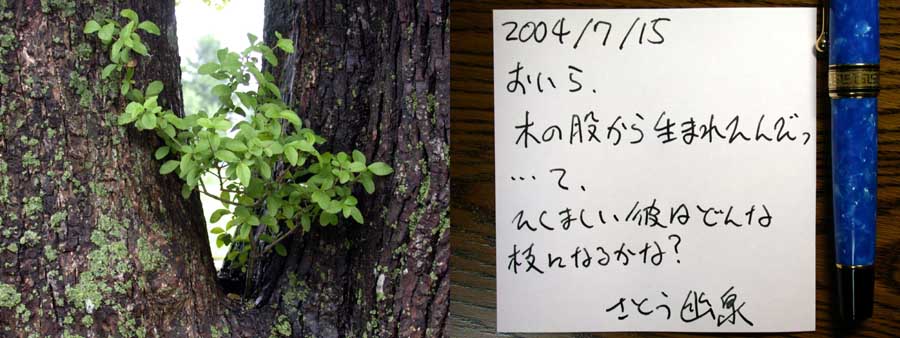 2004/7/15
おいら、
木の股から生まれたんだっ
…て、
たくましい彼はどんな
枝になるかな?
さとう幽泉